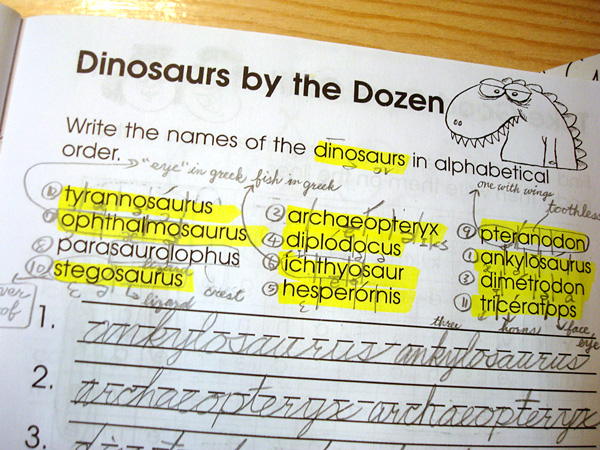 Dinosaurs by the Dozen
Write the names of the dinosaurs in alphabetical
order. → "eye" in greek fish in greek
one with wings
toothless
⑫ tyrannosaurus ② archaeopteryx ⑨ pteranodon
⑦ ophthalmosaurus ④ diplodocus ① ankylosaurus
⑧ parasaurolophus ⑥ ichthyosaur ③ dimetrodon
⑩ stegosaurus ⑤ hesperornis ⑪ triceratops
lizard crest
three horns face
eye
1. ankylosaurus ankylosaurus
2. archaeopteryx archaeopteryx
3.